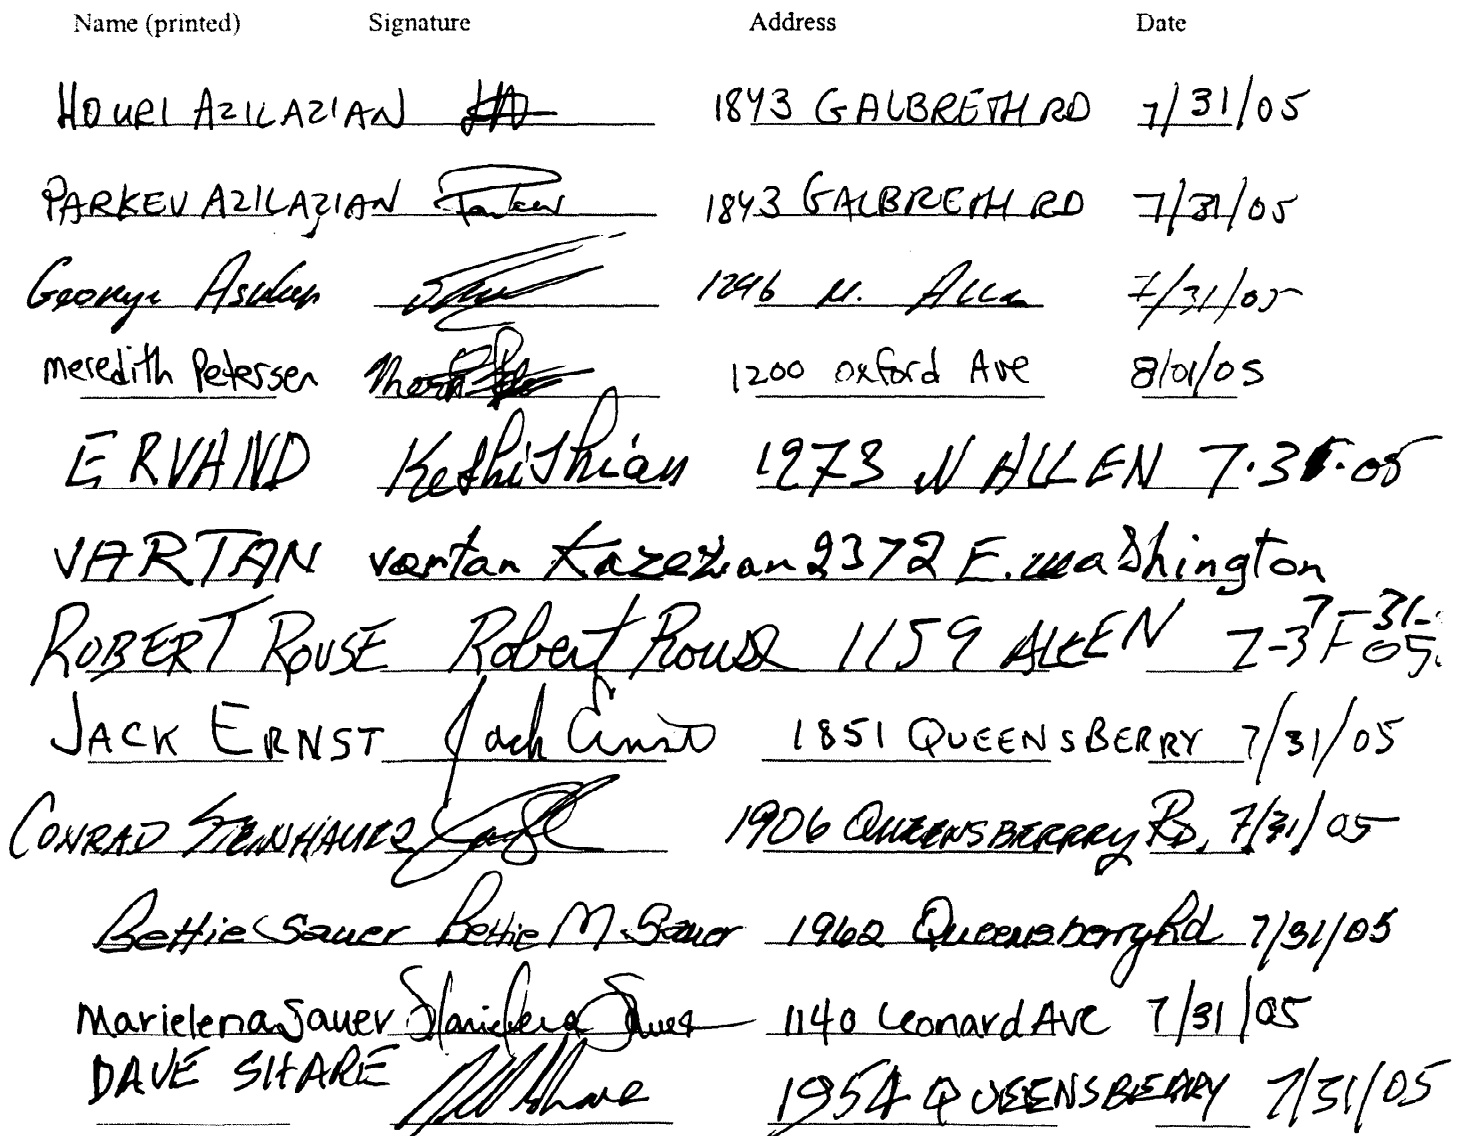 Name (printed) Signature Address Date
HOURI AZILAZIAN 1843 GALBRETH RD 7/31/05
PARKEV AZILAZIAN 1843 GALBRETH RD 7/31/05
George 1296 N. Allen 7/31/05
Meredith Petersen 1200 Oxford Ave 8/01/05
ERVAND Keshishian 1273 N ALLEN 7.31.05
VARTAN vartan Kazezian 2372 E. Washington
ROBERT ROUSE Robert Rouse 1159 ALLEN 7-31-05 7-31-
JACK ERNST Jack Ernst 1851 QUEENSBERRY 7/31/05
CONRAD STEINHAUER 1906 QUEENSBERRRY RD. 7/31/05
Bettie Sauer Bettie M. Sauer 1962 Queensberry Rd 7/31/05
Marielena Sauer Marielena Sauer 1140 Leonard Ave 7/31/05
DAVE SHARE 1954 QUEENSBERRY 7/31/05